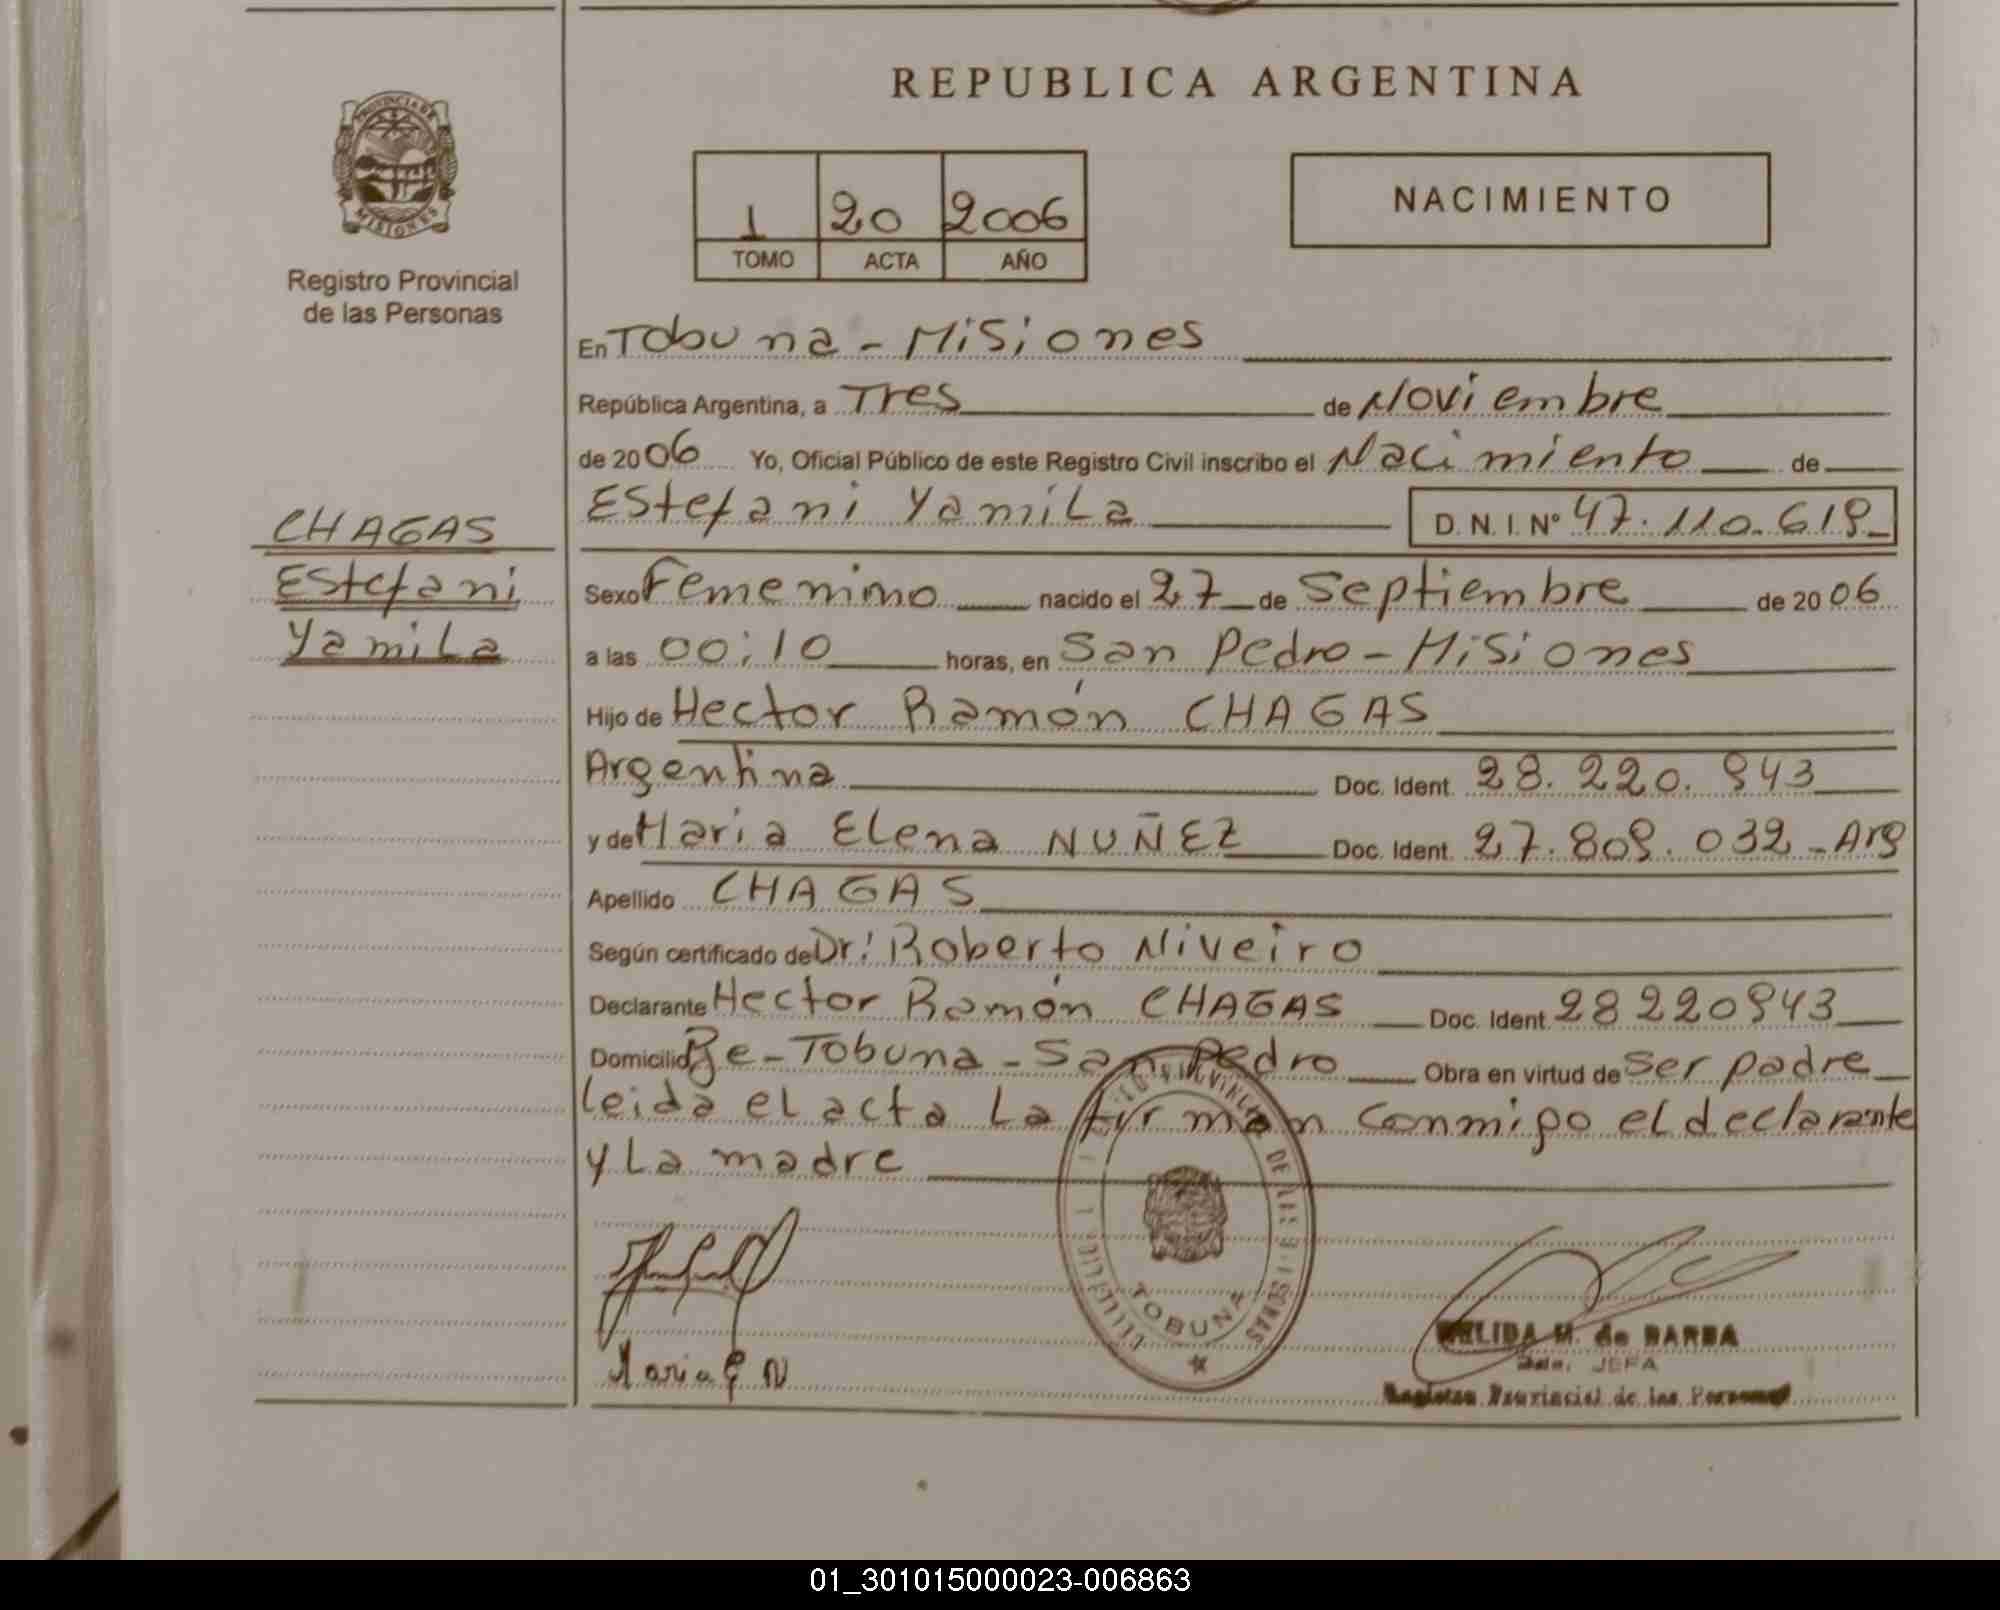 REPUBLICA ARGENTINA
PROVINCIA DE
MISIONES
Registro Provincial
de las Personas
1 20 2006
TOMO ACTA AÑO
NACIMIENTO
En Tobuna - Misiones
República Argentina, a Tres de Noviembre
de 2006 Yo, Oficial Público de este Registro Civil inscribo el Nacimiento de
Estefani Yamila D. N. I. Nº 47.110.619
CHAGAS
Estefani
Yamila
Sexo Femenino nacido el 27 de Septiembre de 2006
a las 00:10 horas, en San Pedro - Misiones
Hijo de Hector Ramón CHAGAS
Argentina Doc. Ident. 28.220.943
y de Maria Elena NUÑEZ Doc. Ident. 27.809.032 - Arg
Apellido CHAGAS
Según certificado de Dr: Roberto Niveiro
Declarante Hector Ramón CHAGAS Doc. Ident. 28220943
Domicilio Pje - Tobuna - San Pedro Obra en virtud de ser padre
leida el acta La firman conmigo el declarante
y La madre
Maria E N
TOBUNA
M. de BARBA
JEFA
Registro Provincial de las Personas
01_301015000023-006863